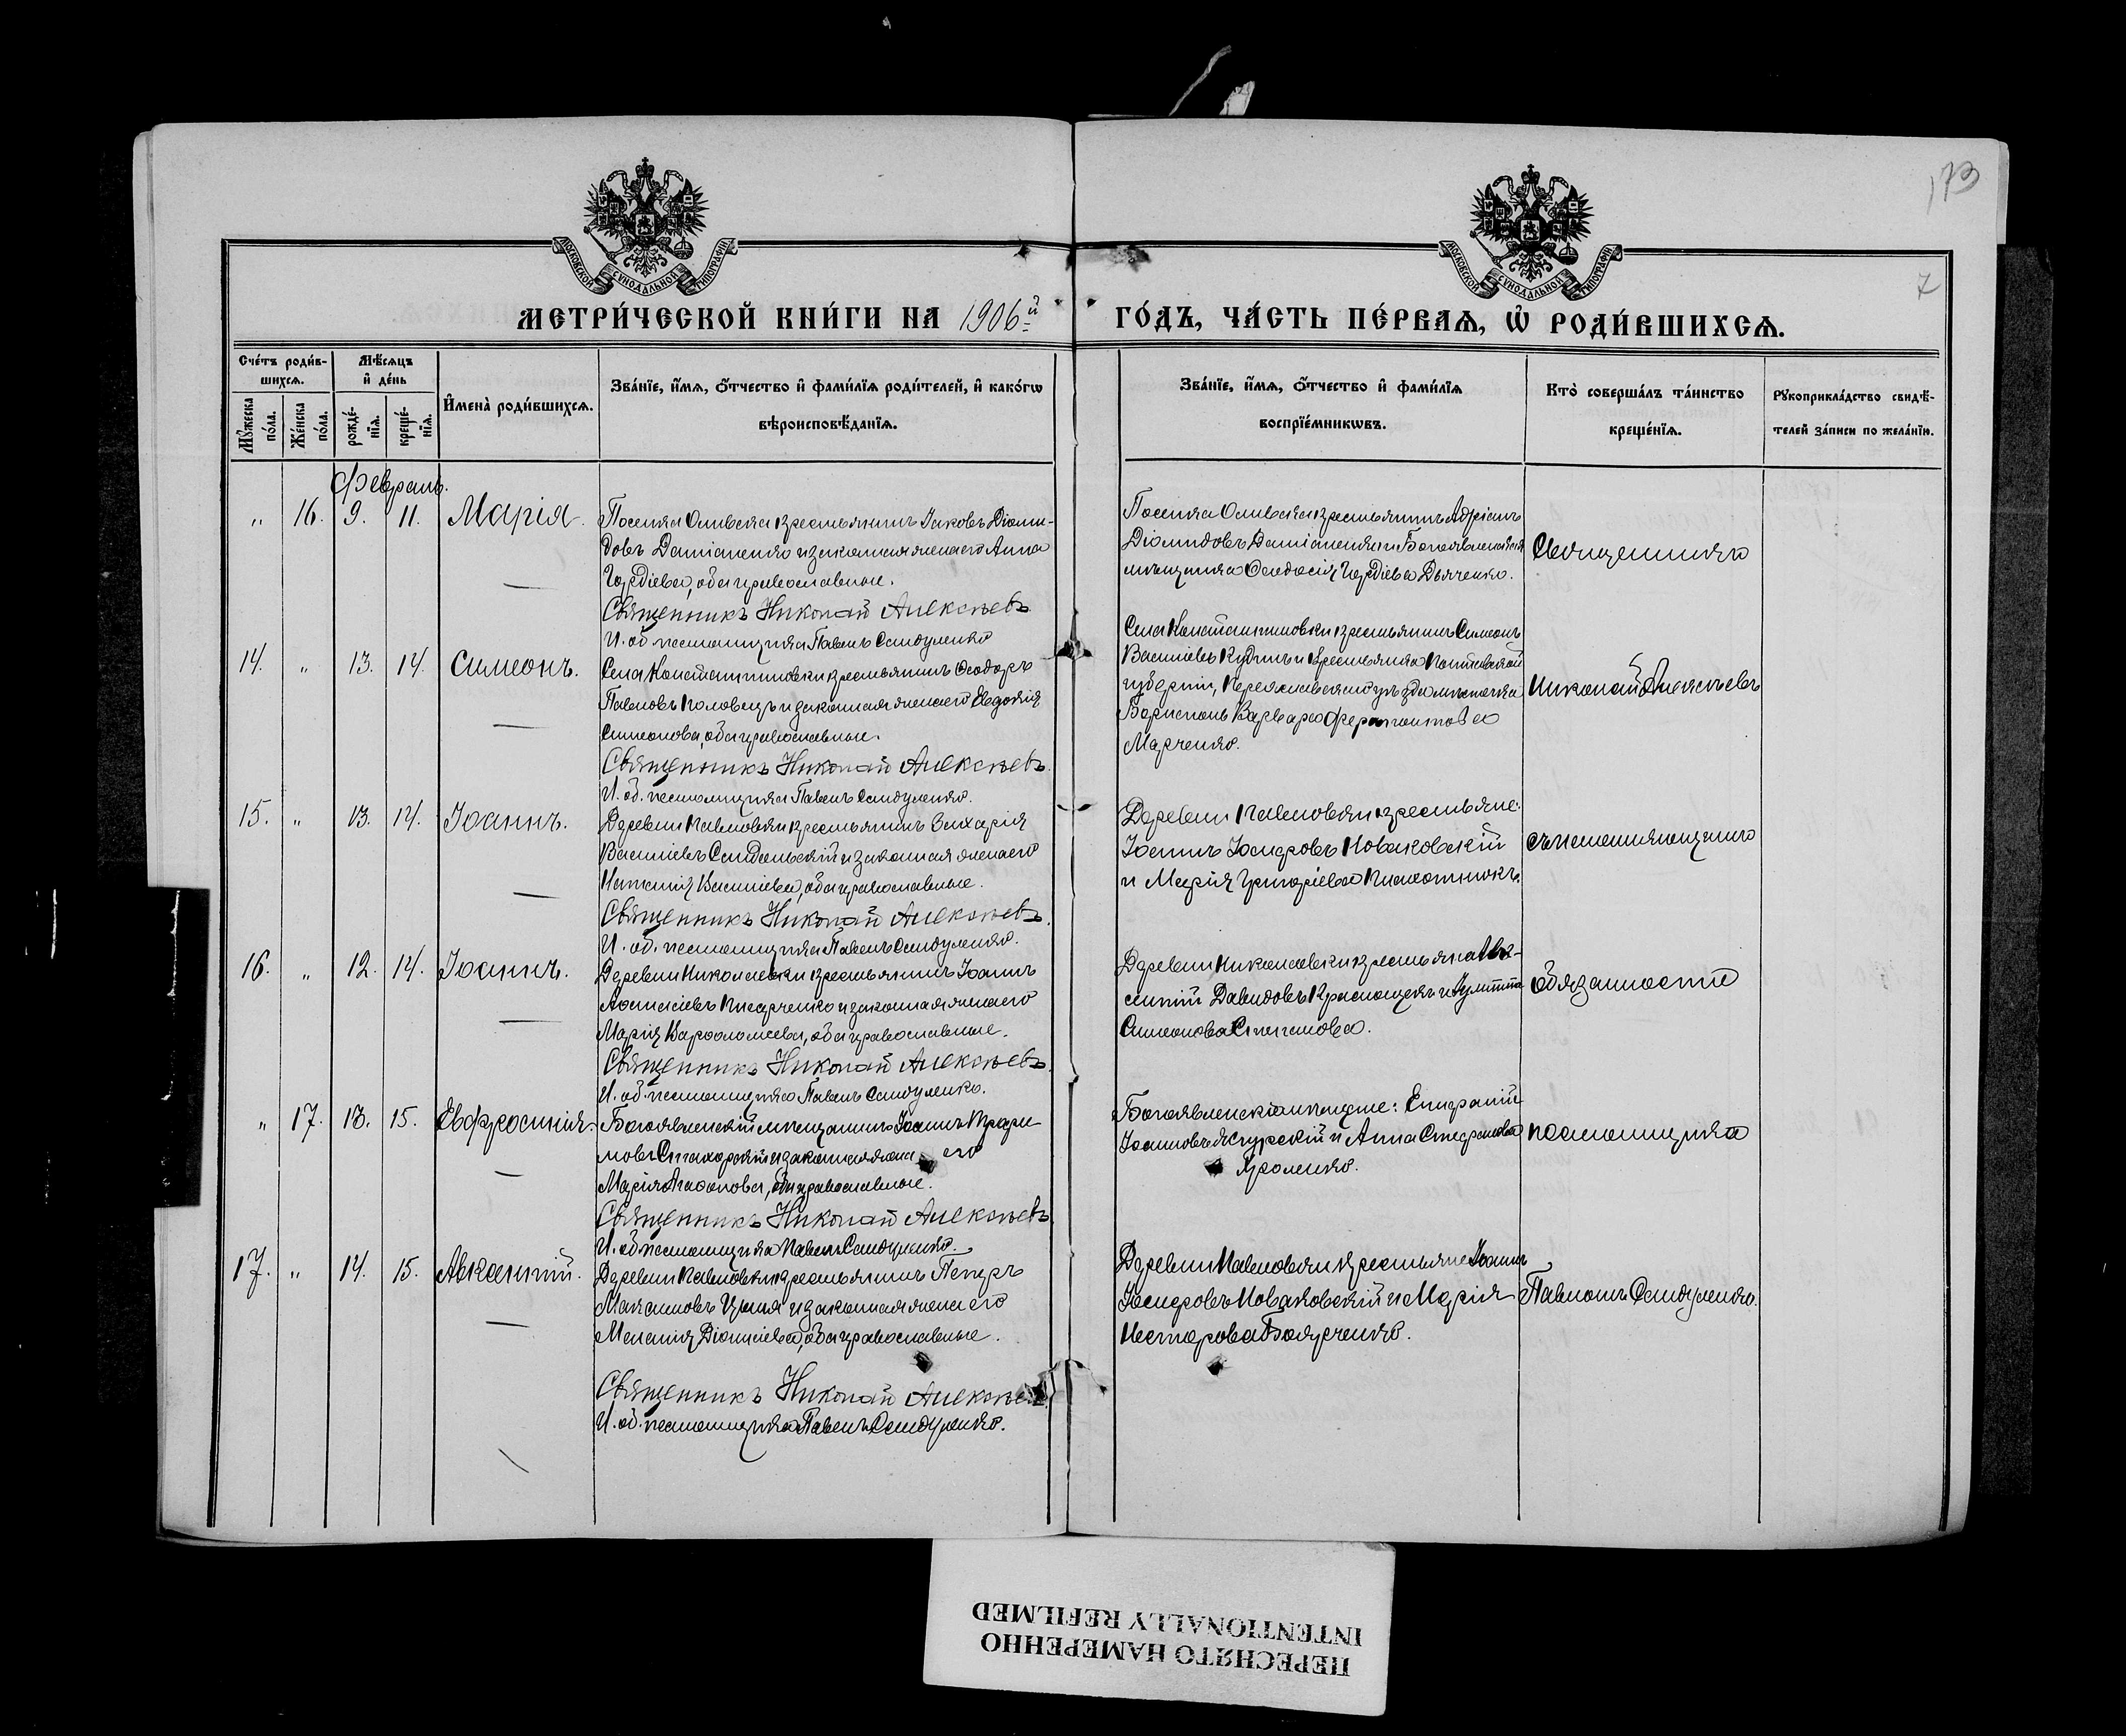 173
7
МОСКОВСКОЙ СѴНОДАЛЬНОЙ ТИПОГРАФІИ
МОСКОВСКОЙ СѴНОДАЛЬНОЙ ТИПОГРАФІИ
МЕТРИ́ЧЕСКОЙ КНИ́ГИ НА 1906й
ГО́ДЪ, ЧА́СТЬ ПЕ́РВАѦ, Ѡ҆ РОДИ́ВШИХСѦ.
Сче́тъ роди́в-
шихсѧ.
Мѣ́сѧцъ
и҆ де́нь
Мꙋ́жеска по́ла.
Же́нска по́ла.
рожде́-
нїѧ.
креще́-
нїѧ.
И҆мена̀ роди́вшихсѧ.
Зва́нїе, и҆́мѧ, ѻ҆́тчество и҆ фами́лїѧ роди́телей, и҆ како́гѡ
вѣроисповѣ́данїѧ.
Зва́нїе, и҆́мѧ, ѻ҆́тчество и҆ фами́лїѧ
воспрїе́мникѡвъ.
Кто̀ соверша́лъ та́инство
креще́нїѧ.
Рꙋкоприкла́дство свидѣ́-
телей за́писи по жела́нїю.
Февраль.
„ 16. 9. 11. Марія.
Поселка Ольвска крестьянинъ Іаковъ Діоми-
довъ Даміаненко и законная жена его Анна
Гордіева, оба православные.
Священникъ Николай Алексѣевъ
И. об. псаломщика Павелъ Сандуленко
Поселка Ольвска крестьянинъ Адріанъ
Діомидовъ Даміаненко и Богоявленская
мѣщанка Ѳеодосія Гордіева Дьяченко.
Священникъ
14. „ 13. 14. Симеонъ.
Села Константиновки крестьянинъ Ѳеодоръ
Павловъ Половецъ и законная жена его Евдокія
Симеонова, оба православные.
Священникъ Николай Алексѣевъ.
И. об. псаломщика Павелъ Сандуленко.
Села Константиновки крестьянинъ Симеонъ
Васильевъ Кудинъ и крестьянка Полтавской
губерніи, Переяславскаго уѣзда мѣстечка
Борисполь Варвара Ферапонтова
Марченко.
Николай Алексѣевъ
15. „ 13. 14. Іоаннъ.
Деревни Павловки крестьянинъ Захарія
Васильевъ Сандальскій и законная жена его
Наталія Васильева, оба православные.
Священникъ Николай Алексѣевъ.
И. об. псаломщика Павелъ Сандуленко.
Деревни Павловки крестьяне:
Іоаннъ Іосифовъ Новаковскій
и Марія Григоріева
съ исполняющимъ
16. „ 12. 14. Іоаннъ.
Деревни Николаевки крестьянинъ Іоаннъ
Аѳанасіевъ Писарченко и законная жена его
Марія Варѳоломеева, оба православные.
Священникъ Николай Алексѣевъ.
И. об. псаломщика Павелъ Сандуленко.
Деревни Николаевки крестьяне
Давидовъ и Іулитта
Симеонова Степанова.
обязанности
„ 17. 13. 15. Евфросинія.
Богоявленскій мѣщанинъ Іоаннъ
и законная жена его
Марія Агаѳонова, оба православные.
Священникъ Николай Алексѣевъ.
И. об. псаломщика Павелъ Сандуленко.
Богоявленскіе мѣщане: Епифаній
Іоанновъ и Анна Стефанова
Яроленко.
псаломщика
17. „ 14. 15. Авксентій.
Деревни Павловки крестьянинъ Петръ
Максимовъ и законная жена его
Меланія Діонисіева, оба православные.
Священникъ Николай Алексѣевъ.
И. об. псаломщика Павелъ Сандуленко.
Деревни Павловки крестьяне Іоаннъ
Іосифовъ Новаковскій и Марія
Несторова
Павломъ Сандуленко.
ПЕРЕСНЯТО НАМЕРЕННО
INTENTIONALLY REFILMED